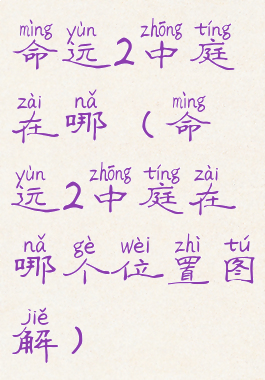 mìng yùn zhōng tíng
命运2中庭
zài nǎ mìng
在哪（命
yùn zhōng tíng zài
运2中庭在
nǎ gè wèi zhì tú
哪个位置图
jiě
解）